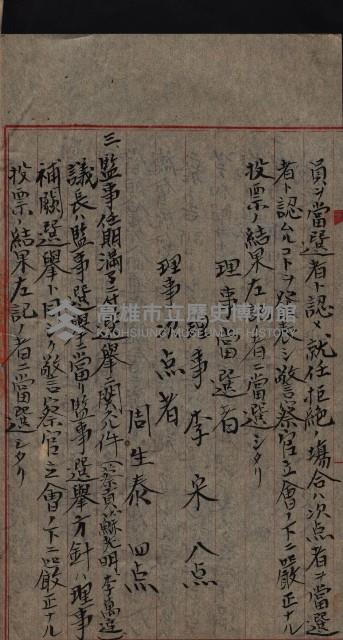 員ヲ當選者ト認メ就任拒絶ノ場合ハ次点者ヲ當選
者ト認ムルコトヲ発表シ警察官立會ノ下ニ嚴正ナル
投票ノ結果左記ノ者ニ當選シタリ
理事當選者
理事 李 宋 八点
理事次点者
周生泰 四点
三、監事任期満了ニ付選擧ニ関スル件
議長ハ監事選擧ニ當リ監事選擧方針ハ理事
補闕選擧ト同シク警察官立會ノ下ニ嚴正ナル
投票ノ結果左記ノ者ニ當選シタリ
高雄市立歷史博物館
KAOHSIUNG MUSEUM OF HISTORY